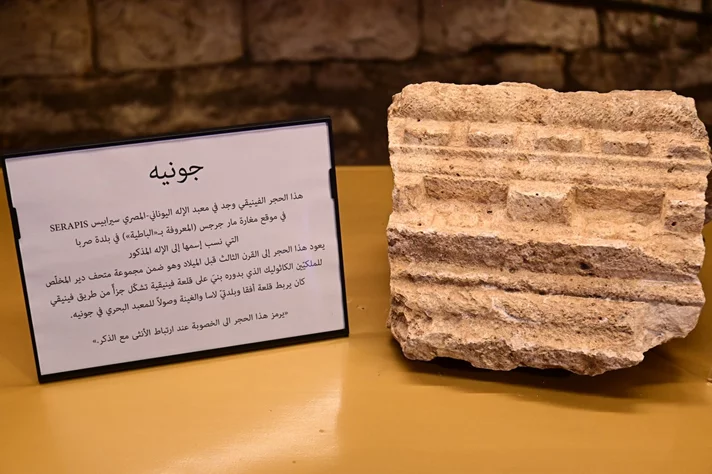 جونيه
هذا الحجر الفينيقي وجد في معبد الإله اليوناني-المصري سيرابيس SERAPIS
في موقع مغارة مار جرجس (المعروفة بـ«الباطية») في بلدة صربا
التي نسب إسمها إلى الإله المذكور
يعود هذا الحجر إلى القرن الثالث قبل الميلاد وهو ضمن مجموعة متحف دير المخلّص
للملكيّين الكاثوليك الذي بدوره بنيَ على قلعة فينيقية تشكّل جزأً من طريق فينيقي
كان يربط قلعة أفقا وبلدتيّ لاسا والغينة وصولاً للمعبد البحري في جونيه.
«يرمز هذا الحجر الى الخصوبة عند ارتباط الأنثى مع الذكر.»